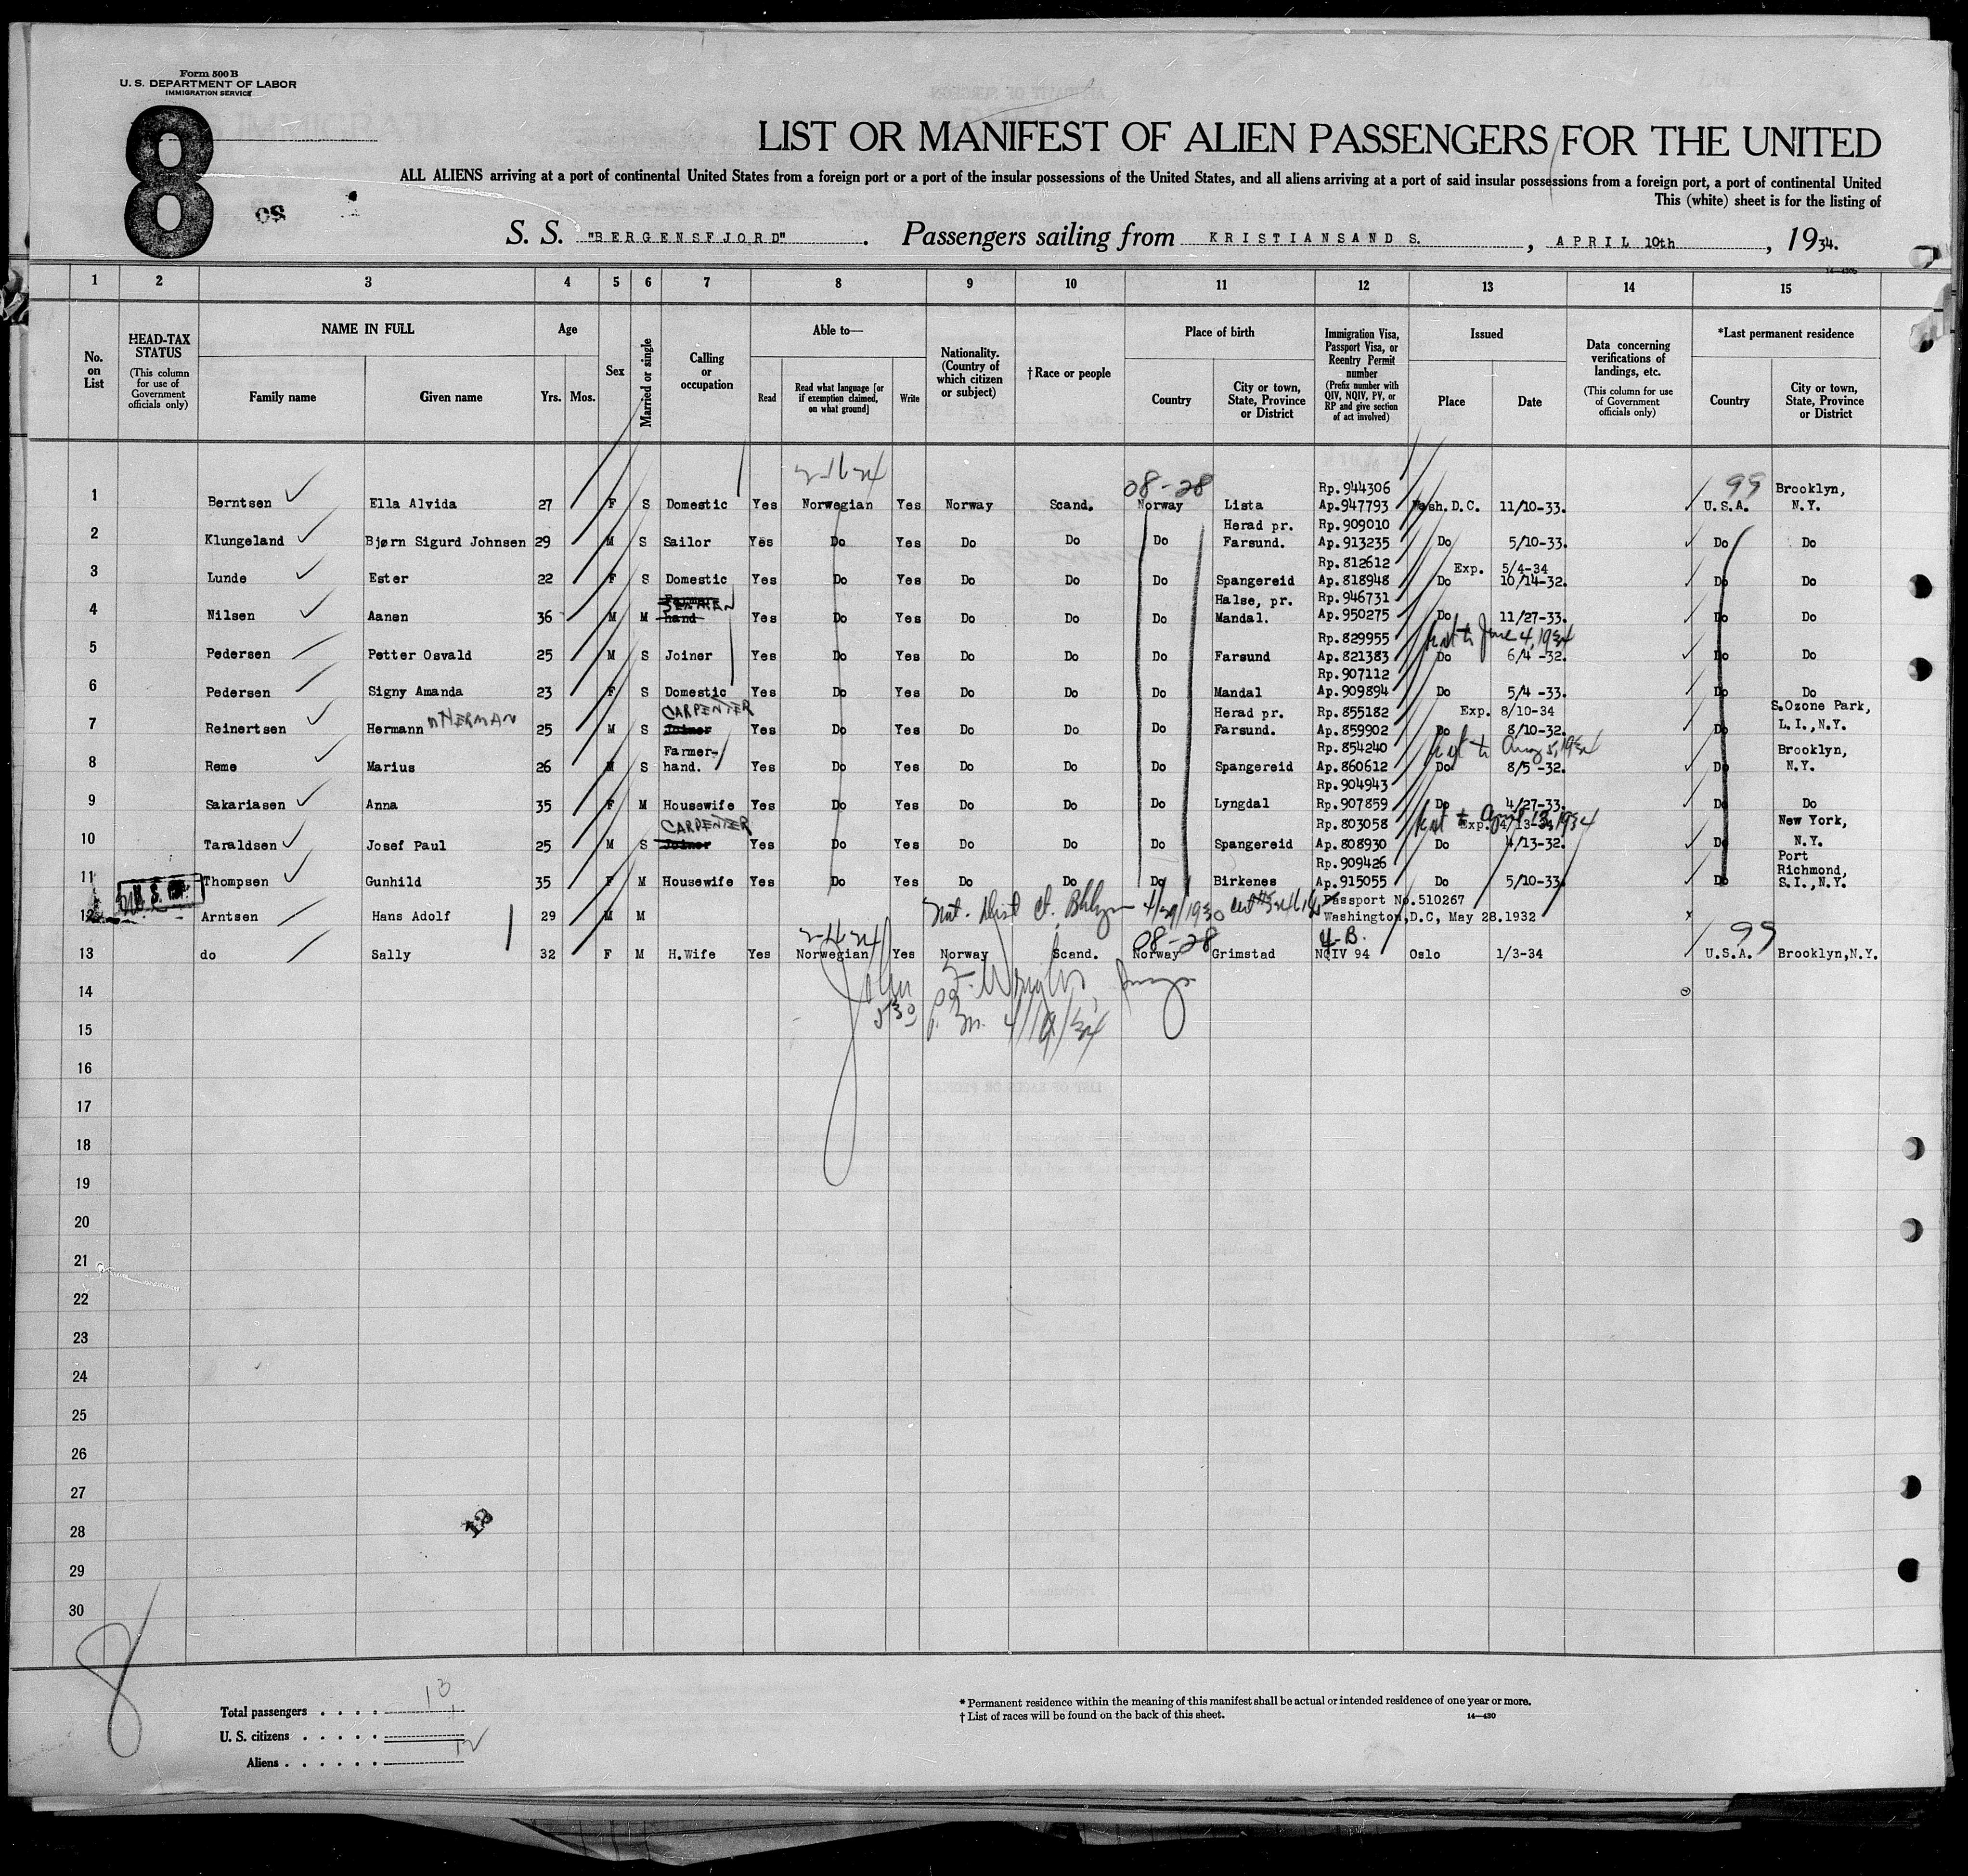 Form 500 B
U. S. DEPARTMENT OF LABOR
IMMIGRATION SERVICE
8
LIST OR MANIFEST OF ALIEN PASSENGERS FOR THE UNITED
ALL ALIENS arriving at a port of continental United States from a foreign port or a port of the insular possessions of the United States, and all aliens arriving at a port of said insular possessions from a foreign port, a port of continental United
This (white) sheet is for the listing of
S. S. "BERGENSFJORD". Passengers sailing from KRISTIANSAND S., APRIL 10th, 1934.
1 2 3 4 5 6 7 8 9 10 11 12 13 14 15
No. on List
HEAD-TAX STATUS (This column for use of Government officials only)
NAME IN FULL
Family name Given name
Age
Yrs. Mos.
Sex
Married or single
Calling or occupation
Able to—
Read Read what language [or if exemption claimed, on what ground] Write
Nationality. (Country of which citizen or subject)
†Race or people
Place of birth
Country City or town, State, Province or District
Immigration Visa, Passport Visa, or Reentry Permit number (Prefix number with QIV, NQIV, PV, or RP and give section of act involved)
Issued
Place Date
Data concerning verifications of landings, etc. (This column for use of Government officials only)
*Last permanent residence
Country City or town, State, Province or District
08-28 99
1 Berntsen Ella Alvida 27 F S Domestic Yes Norwegian Yes Norway Scand. Norway Lista Rp.944306 Ap.947793 Wash.D.C. 11/10-33. U.S.A. Brooklyn, N.Y.
2 Klungeland Bjørn Sigurd Johnsen 29 M S Sailor Yes Do Yes Do Do Do Herad pr. Farsund. Rp.909010 Ap.913235 Do 5/10-33. Do Do
3 Lunde Ester 22 F S Domestic Yes Do Yes Do Do Do Spangereid Rp.812612 Ap.818948 Exp. 5/4-34 Do 10/14-32. Do Do
4 Nilsen Aanen 36 M M Farmer hand SEAMAN Yes Do Yes Do Do Do Halse, pr. Mandal. Rp.946731 Ap.950275 Do 11/27-33. Do Do
5 Pedersen Petter Osvald 25 M S Joiner Yes Do Yes Do Do Do Farsund Rp.829955 Ap.821383 to June 4, 1934 Do 6/4 -32. Do Do
6 Pedersen Signy Amanda 23 F S Domestic Yes Do Yes Do Do Do Mandal Rp.907112 Ap.909894 Do 5/4 -33. Do Do
7 Reinertsen Hermann HERMAN 25 M S CARPENTER Joiner Yes Do Yes Do Do Do Herad pr. Farsund. Rp.855182 Ap.859902 Exp. 8/10-34 Do 8/10-32. Do S.Ozone Park, L.I.,N.Y.
8 Reme Marius 26 M S Farmer-hand. Yes Do Yes Do Do Do Spangereid Rp.854240 Ap.860612 to Aug 5, 1934 Do 8/5 -32. Do Brooklyn, N.Y.
9 Sakariasen Anna 35 F M Housewife Yes Do Yes Do Do Do Lyngdal Rp.904943 Rp.907859 Do 4/27-33. Do Do
10 Taraldsen Josef Paul 25 M S CARPENTER Joiner Yes Do Yes Do Do Do Spangereid Rp.803058 Ap.808930 to April 13, 1934 Exp. 4/13-34 Do 4/13-32. Do New York, N.Y.
11 Thompsen Gunhild 35 F M Housewife Yes Do Yes Do Do Do Birkenes Rp.909426 Ap.915055 Do 5/10-33. Do Port Richmond, S.I.,N.Y.
12 Arntsen Hans Adolf 29 M M Nat. Dist Ct. Bklyn Passport No.510267 Washington,D.C, May 28.1932
08-28 4-B. 99
13 do Sally 32 F M H.Wife Yes Norwegian Yes Norway Scand. Norway Grimstad NQIV 94 Oslo 1/3-34 U.S.A. Brooklyn,N.Y.
14
15
16
17
18
19
20
21
22
23
24
25
26
27
28
29
30
12
8
Total passengers . . . . . 13
U. S. citizens . . . . . 1
Aliens . . . . . . 12
* Permanent residence within the meaning of this manifest shall be actual or intended residence of one year or more.
† List of races will be found on the back of this sheet.
14—430